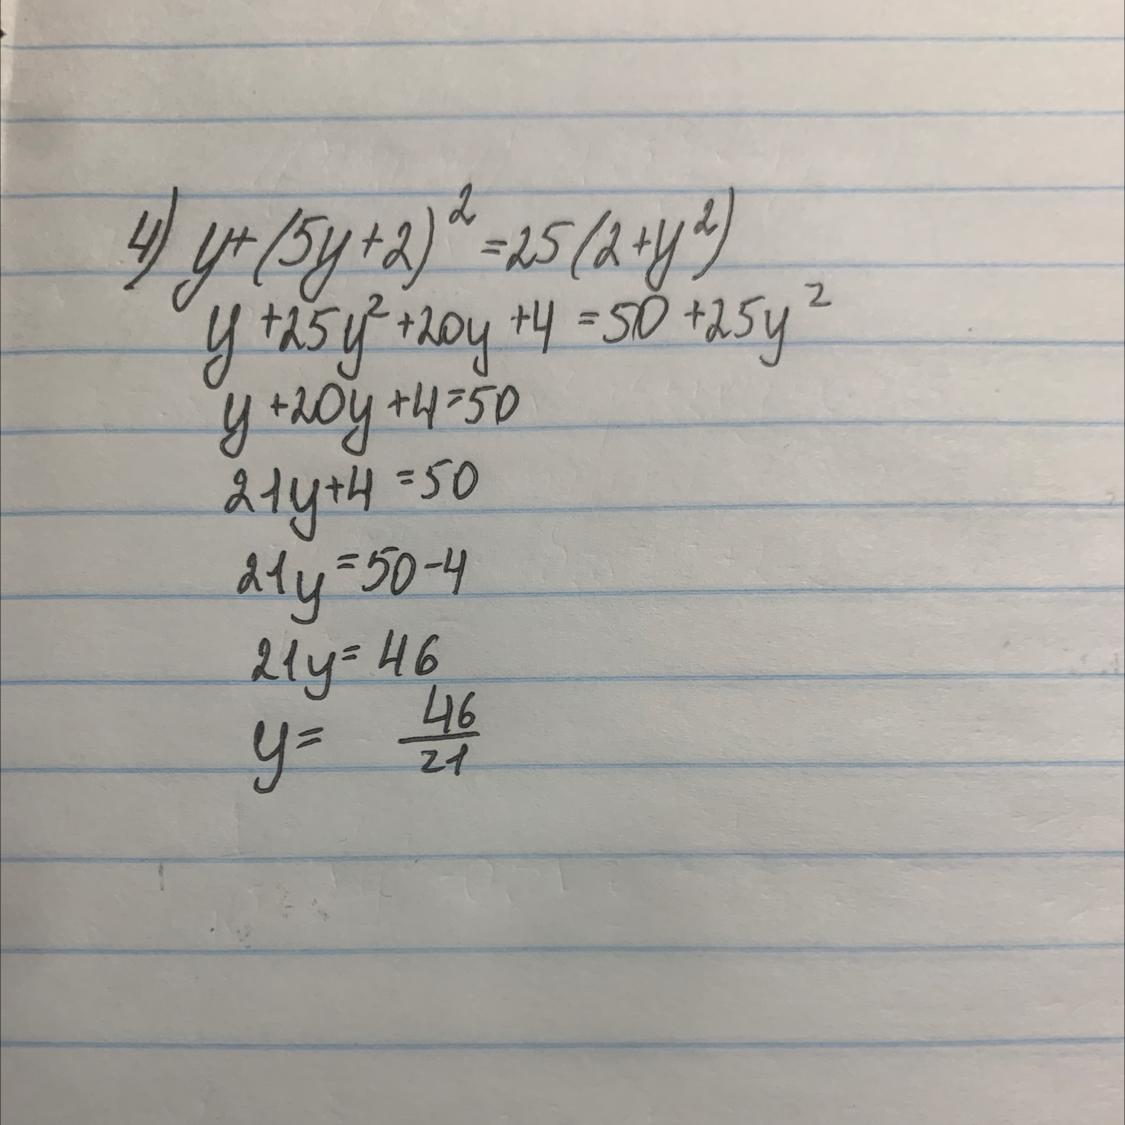 4) y+(5y+2)²=25(2+y²)
y+25y²+20y+4=50+25y²
y+20y+4=50
21y+4=50
21y=50-4
21y=46
y= 46/21